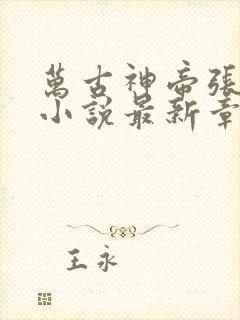 萬古神帝張
小說最新章
王永